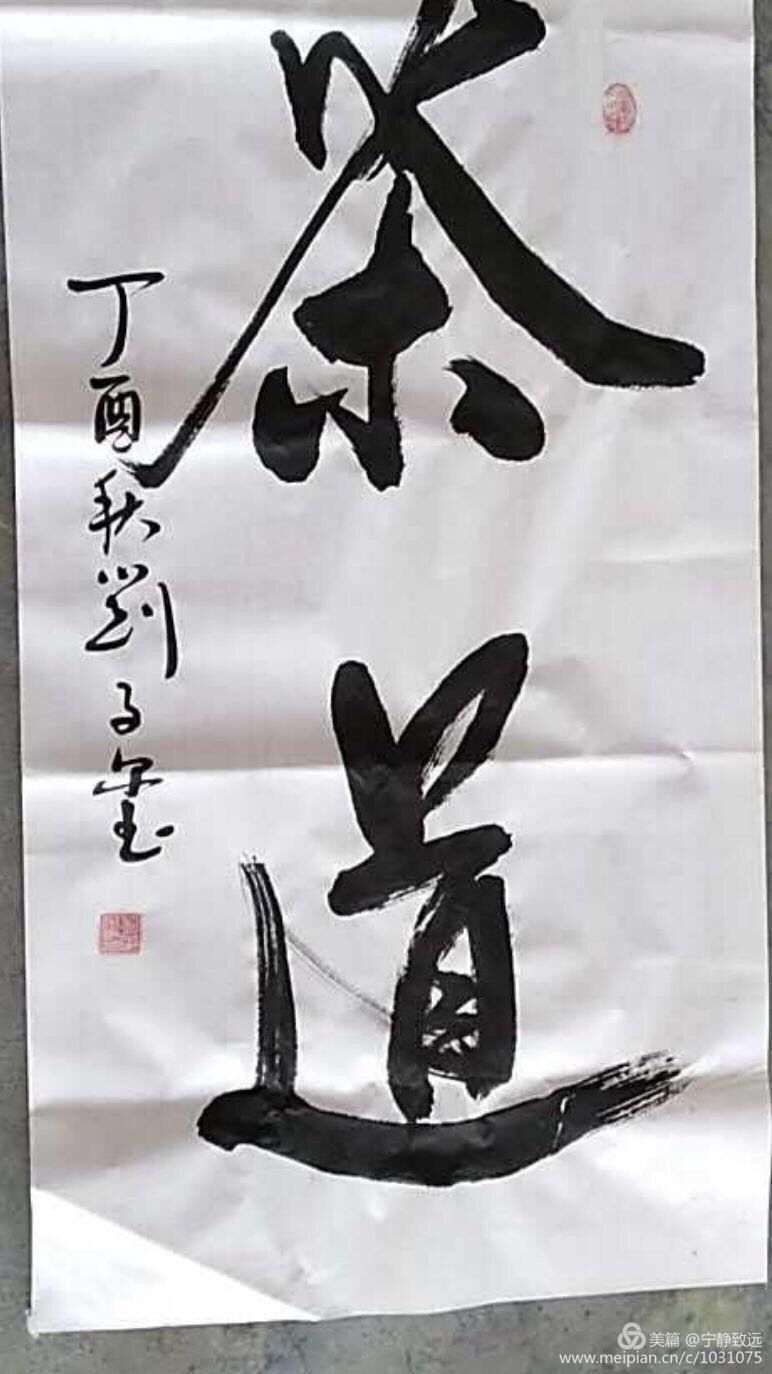 茶道
丁酉秋劉子玺
美篇 @宁静致远
www.meipian.cn/c/1031075